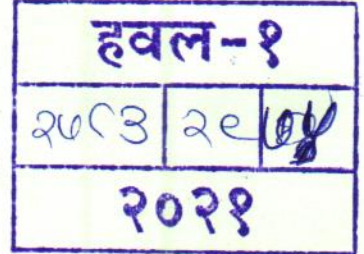 हवल-१
२७८३ २९
२०२१